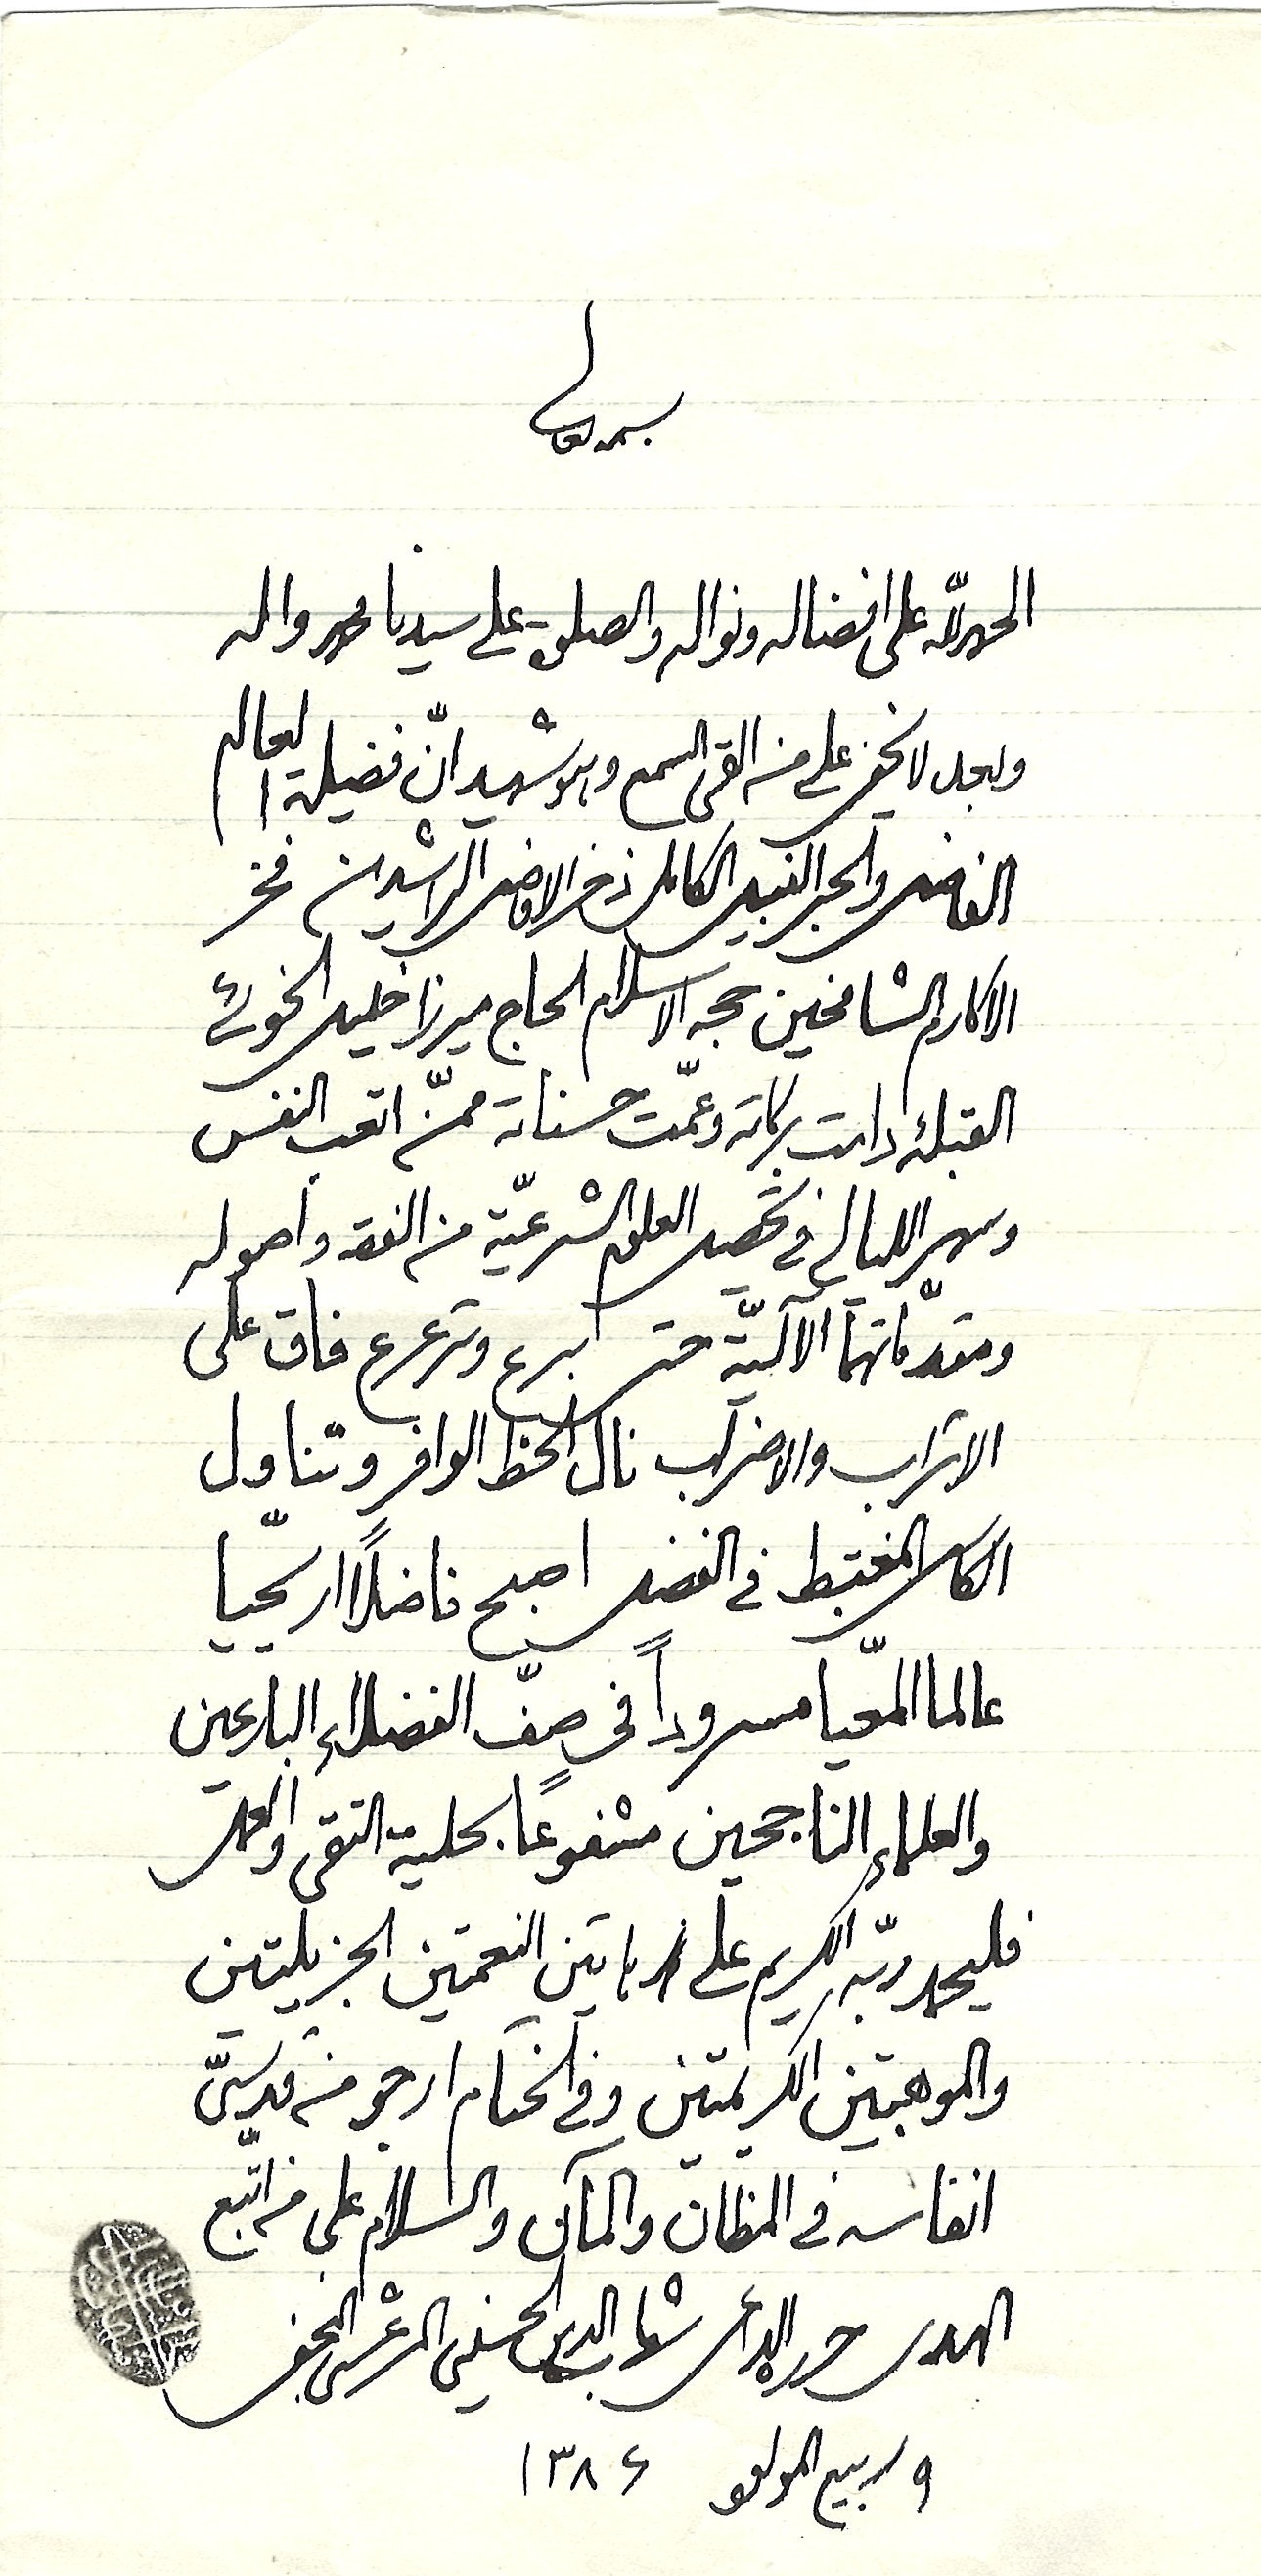 بسمه تعالی
الحمد لله علی افضاله ونواله والصلوة علی سیدنا محمد واله
وبعد لا یخفی علی من القی السمع وهو شهید انّ فضیلة العالم
الفاضل والحبر النبیل الکامل ذخر الافاضل الراشدین فخر
الاکارم الشامخین حجه الاسلام الحاج میرزا خلیل الخوئی
القبله دامت برکاته وعمّت حسناته ممّن اتعب النفس
وسهر اللیالی فی تحصیل العلوم الشرعیّة من الفقه واصوله
ومقدّماتهما الآلیّة حتی برع وترعرع فاق علی
الاتراب والاضراب نال الحظ الوافر وتناول
الکاس المغتبط فی الفضل اصبح فاضلاً اریحیّا
عالما المعیّا مسروداً فی صفّ الفضلاء البارعین
والعلماء الناجحین مشفوعاً بحلیة التقی والعمل
فلیحمد ربّه الکریم علی هاتین النعمتین الجزیلتین
والموهبتین الکریمتین وفی الختام ارجو من قدسیّ
انفاسه فی المظانّ والمآن والسلام علی من اتّبع
الهدی حرره الداعی شهاب الدین الحسینی المرعشی النجفی
۹ ربیع المولود ۱۳۸۶